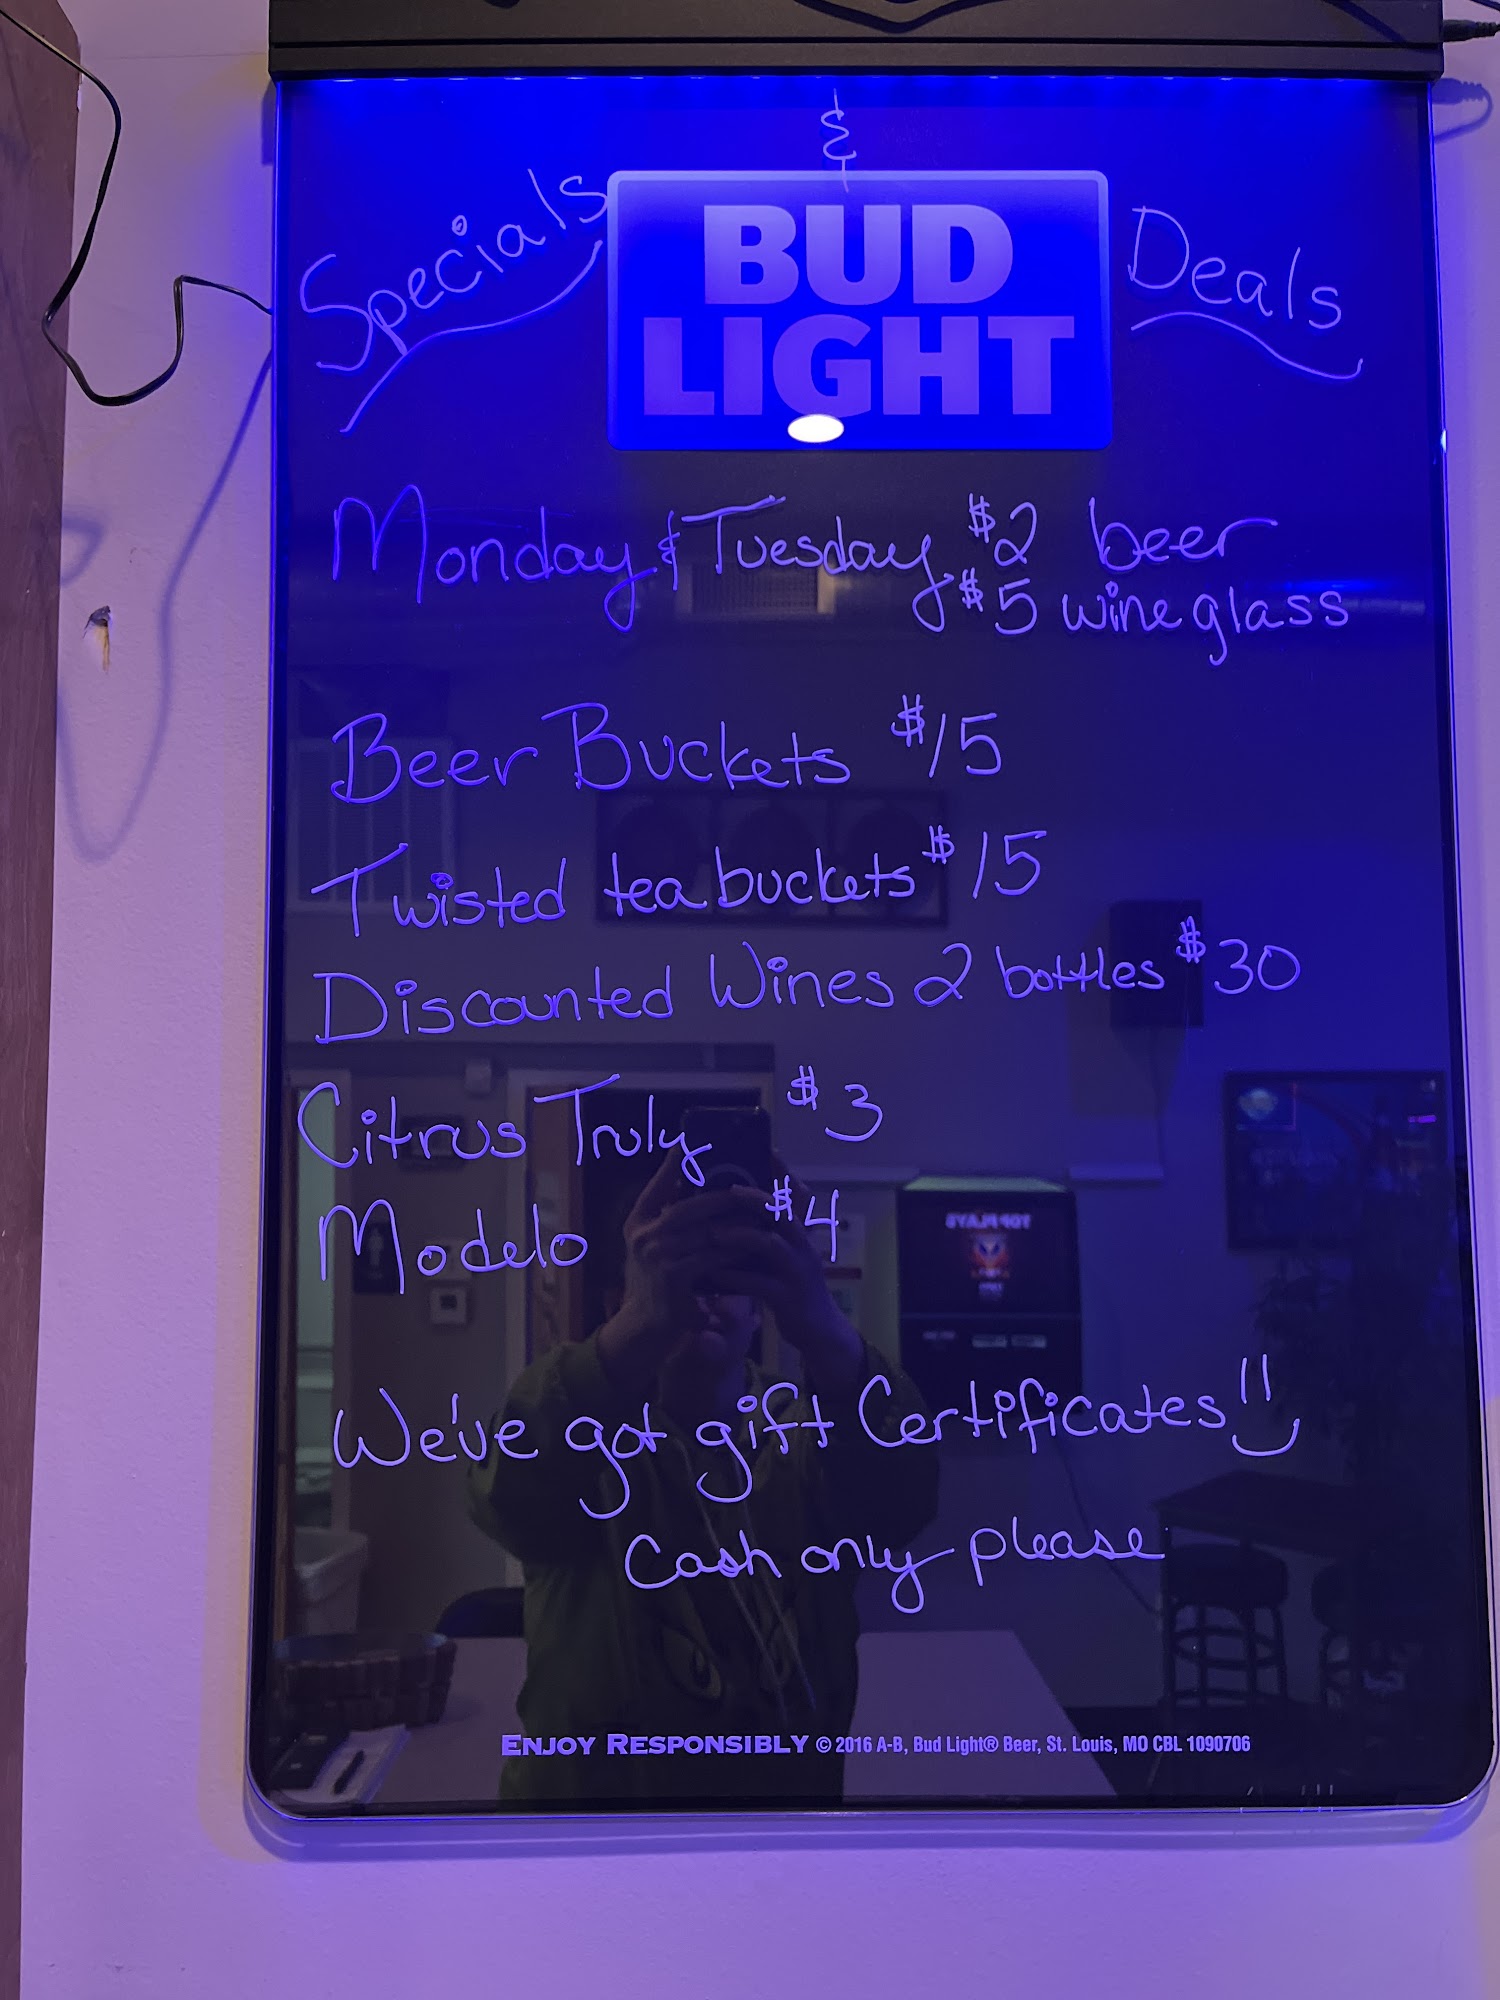 &
Specials
BUD
LIGHT
Deals
Monday & Tuesday $2 beer
$5 wine glass
Beer Buckets $15
Twisted tea buckets $15
Discounted Wines 2 bottles $30
Citrus Truly $3
Modelo $4
We've got gift Certificates!!
Cash only please
ENJOY RESPONSIBLY © 2016 A-B, Bud Light® Beer, St. Louis, MO CBL 1090706
TOP PLAYS